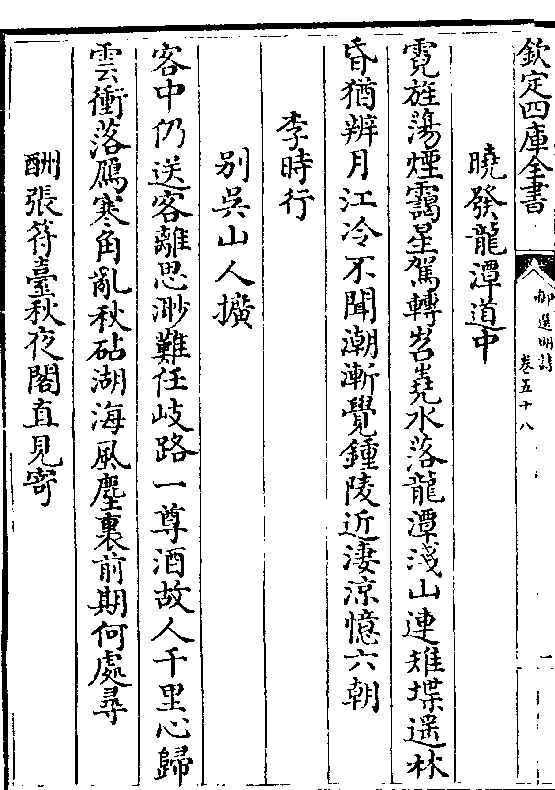 欽定四庫全書
御選明詩
卷五十八
一
曉發龍潭道中
霓旌蕩煙靄星駕轉岧嶤水落龍潭淺山連雉堞遥林
昏猶辨月江冷不聞潮漸覺鍾陵近淒涼憶六朝
李時行
别吳山人擴
客中仍送客離思渺難任岐路一尊酒故人千里心歸
雲衝落鴈寒角亂秋砧湖海風塵裏前期何處尋
酬張符臺秋夜閣直見寄